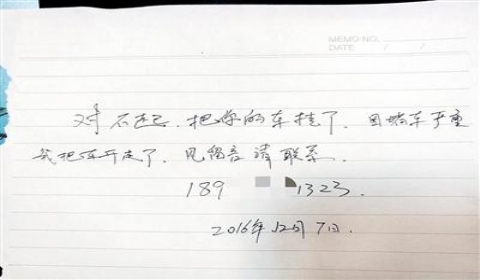 MEMO NO.
DATE / /
对不起，把你的车挂了，因堵车严重
我把车开走了，见留言请联系。
189 1323.
2016年12月7日.